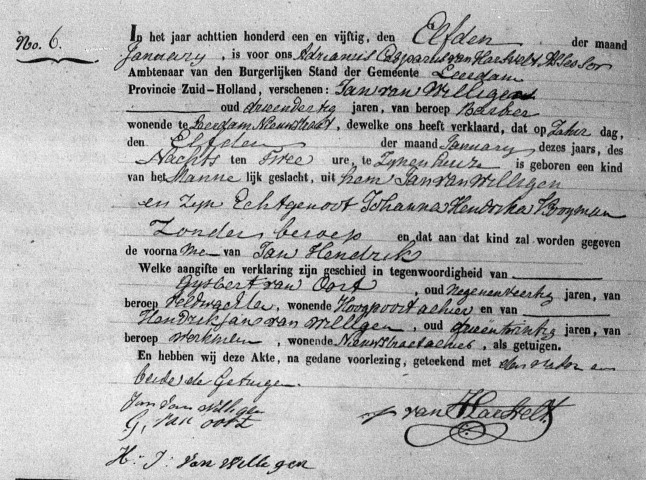 No. 6.
In het jaar achttien honderd een en vijftig, den Elfden der maand
January, is voor ons Adrianus Casparus van Haeften Assessor
Ambtenaar van den Burgerlijken Stand der Gemeente Leerdam
Provincie Zuid-Holland, verschenen: Jan van Willigen
oud drieendertig jaren, van beroep Barbier
wonende te Leerdam Nieuwstraat, dewelke ons heeft verklaard, dat op Zatur dag,
den Elfden der maand January dezes jaars, des
Nachts ten Twee ure, te Zynen huize is geboren een kind
van het Manne lijk geslacht, uit hem Jan van Willigen
en zyn Echtgenoot Johanna Hendrika
Zonder beroep en dat aan dat kind zal worden gegeven
de voorna me van Jan Hendrik
Welke aangifte en verklaring zijn geschied in tegenwoordigheid van
Gysbert van Oort, oud negenenveertig jaren, van
beroep Veldwachter, wonende Hoogpoort alhier en van
Hendrik Jan van Willigen, oud drieentwintig jaren, van
beroep Werkman, wonende Nieuwstraat alhier, als getuigen.
En hebben wij deze Akte, na gedane voorlezing, geteekend met den Vader en
beide de Getuigen.
Jan van Willigen
G. van oort
van
H: J: van Willegen